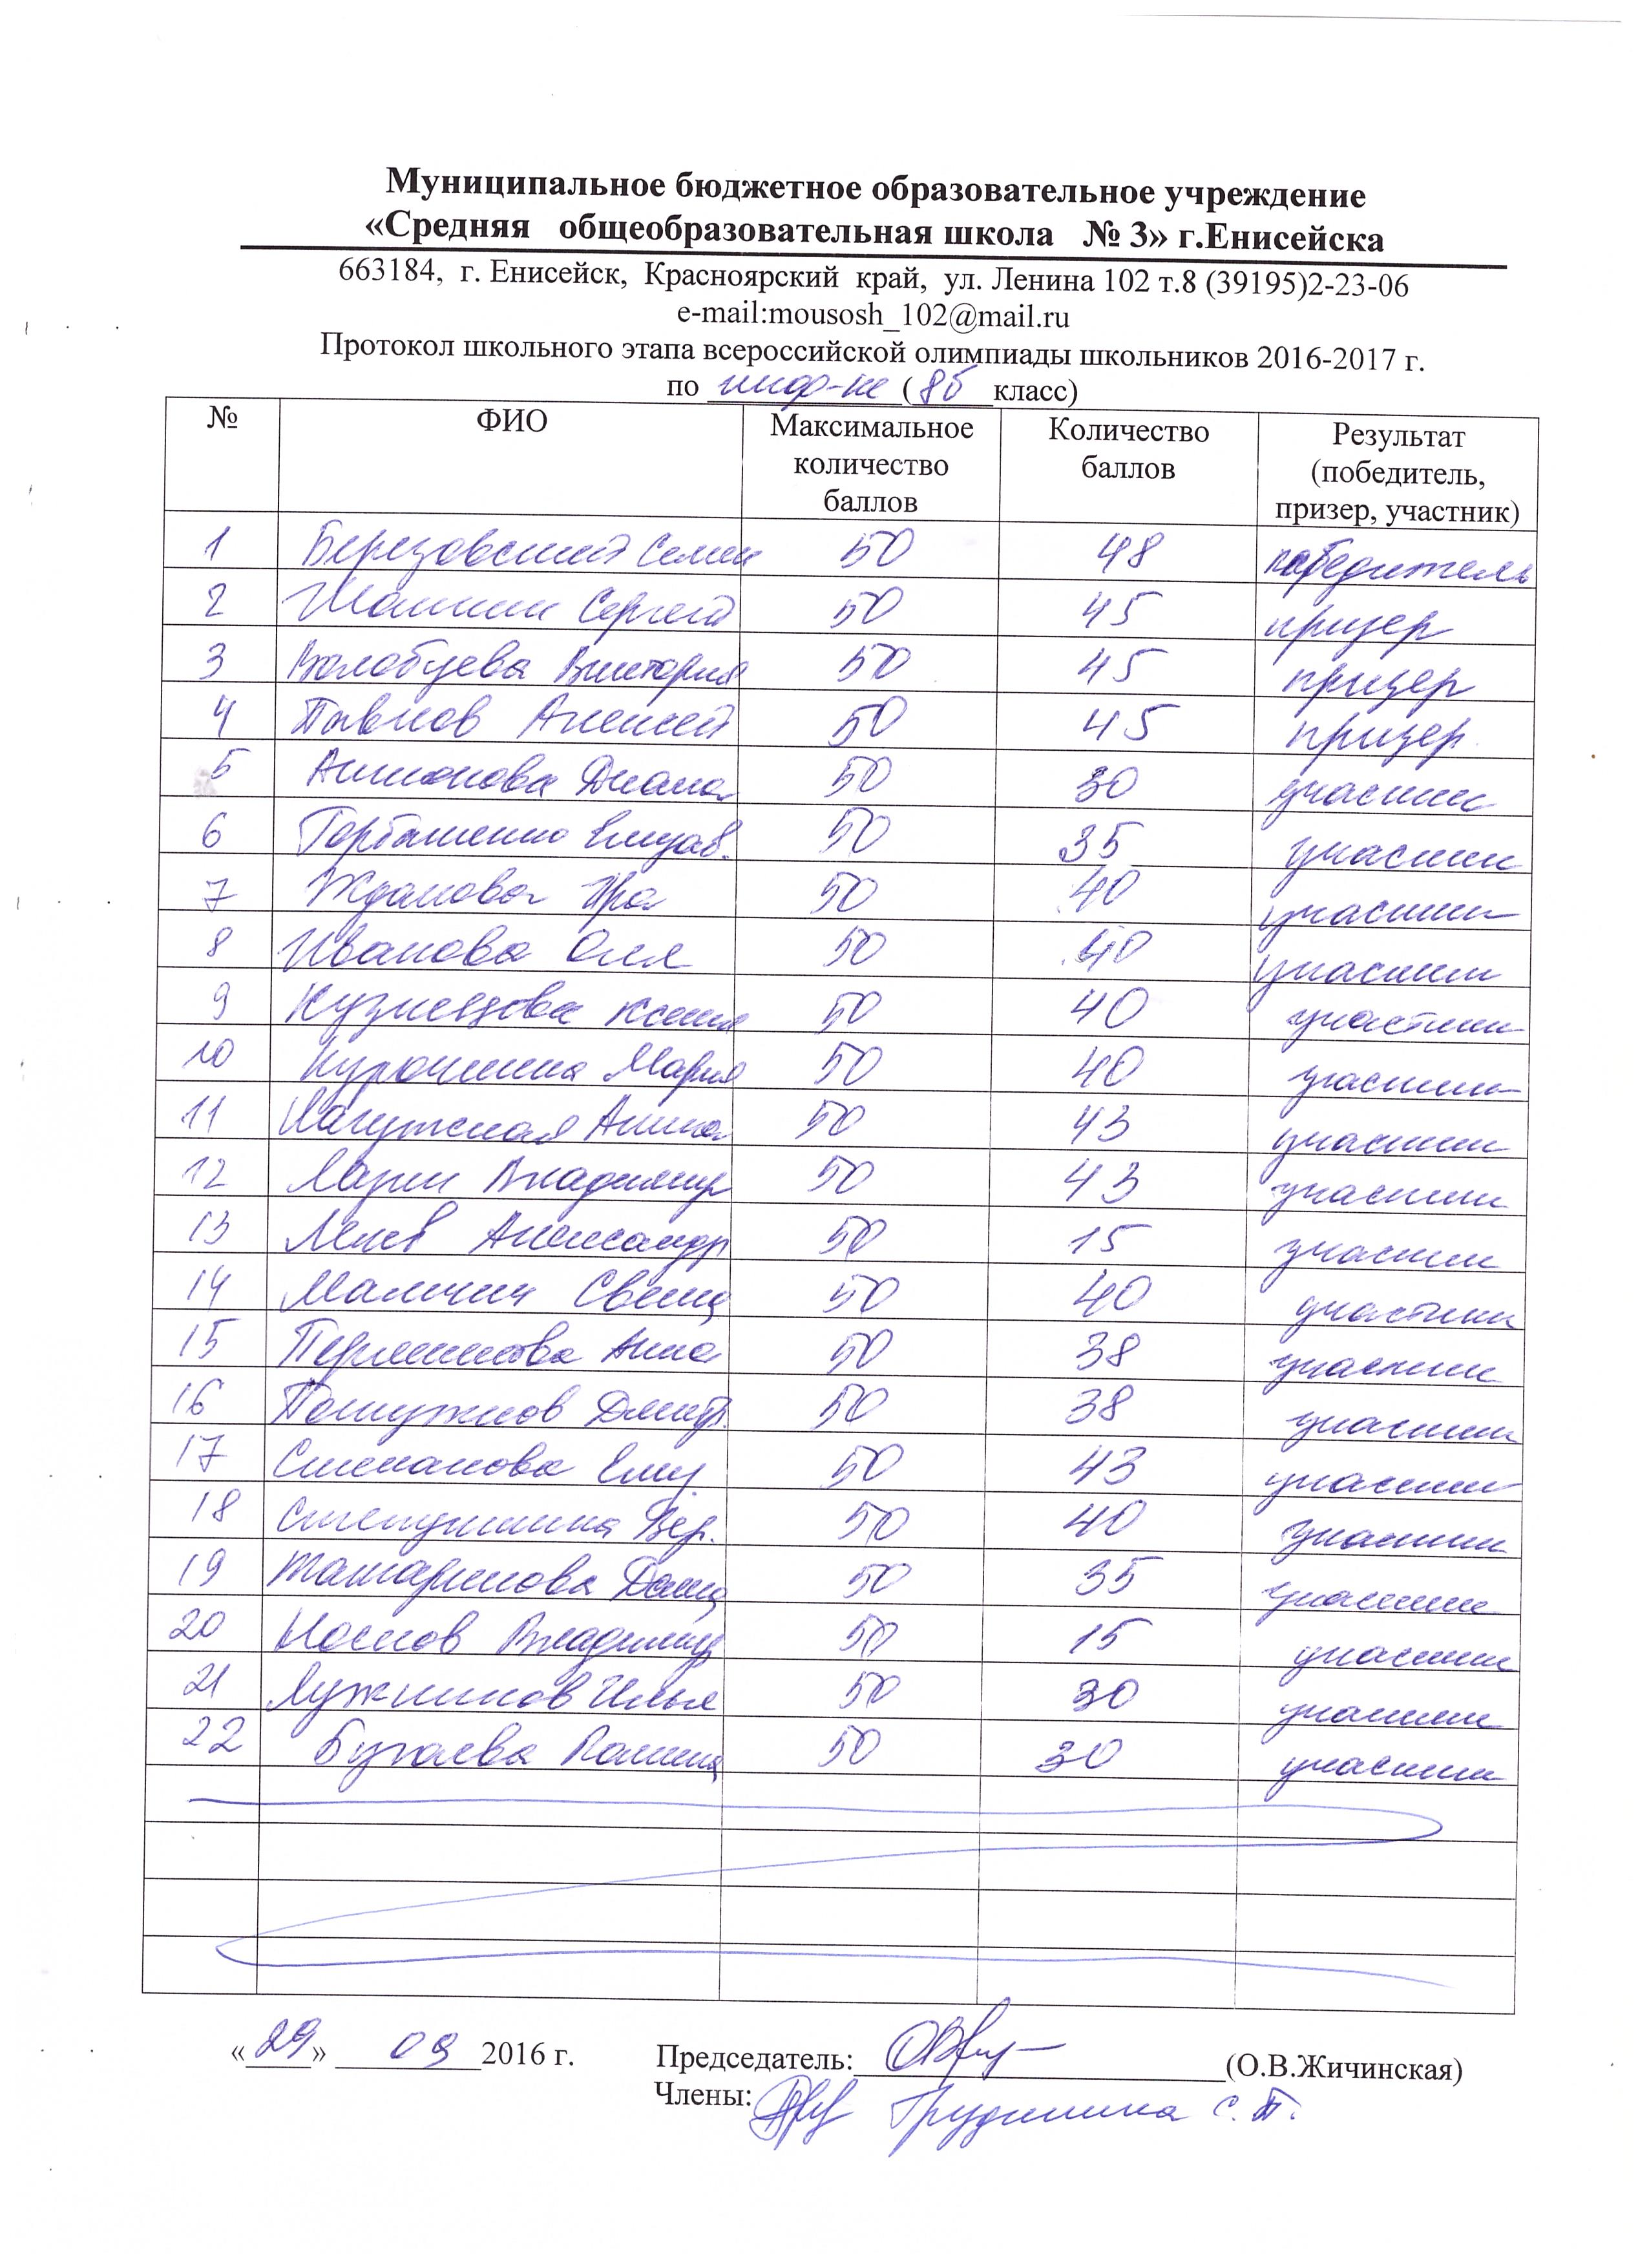 Муниципальное бюджетное образовательное учреждение
«Средняя общеобразовательная школа № 3» г.Енисейска
663184, г. Енисейск, Красноярский край, ул. Ленина 102 т.8 (39195)2-23-06
e-mail:mousosh_102@mail.ru
Протокол школьного этапа всероссийской олимпиады школьников 2016-2017 г.
по инф-ке (8б класс)
№ ФИО Максимальное количество баллов Количество баллов Результат (победитель, призер, участник)
1 Березовский Семен 50 48 победитель
2 Сергей 50 45 призер
3 Волобуева Виктория 50 45 призер
4 Павлов Алексей 50 45 призер
5 Диана 50 30 участник
6 Горбатенко Елизав. 50 35 участник
7 Жданова Ира 50 40 участник
8 Иванова Оля 50 40 участник
9 Кузнецова Ксения 50 40 участник
10 Курочкина Мария 50 40 участник
11 50 43 участник
12 Владимир 50 43 участник
13 Александр 50 15 участник
14 50 40 участник
15 Перминова Анна 50 38 участник
16 Дмитр. 50 38 участник
17 Степанова Елиз. 50 43 участник
18 Степушкина Вер. 50 40 участник
19 Татаринова 50 35 участник
20 Носков Владимир 50 15 участник
21 Лужников Илья 50 30 участник
22 Бугаева Полина 50 30 участник
«29» 09 2016 г. Председатель: (О.В.Жичинская)
Члены: Грудинина С.П.